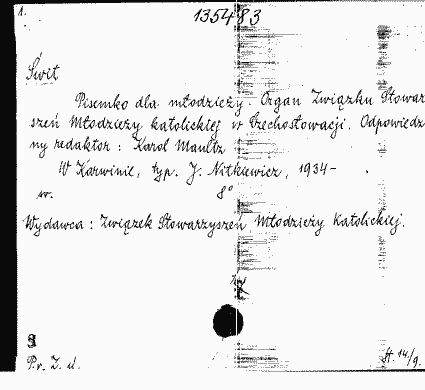 1.
135483
Świt
Pisemko dla młodzieży. Organ Związku Stowar
szeń Młodzieży katolickiej w Czechosłowacji. Odpowiedz
ny redaktor : Karol Maultz
W Karwinie, typ. J. Nitkiewicz, 1934-
w. 8°
Wydawca : Związek Stowarzyszeń Młodzieży Katolickiej.
P.v. Z. d.
H. 14/9.